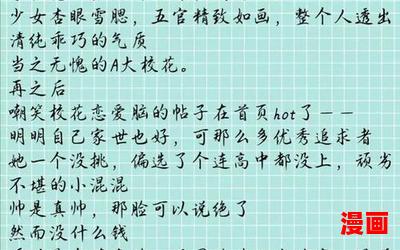 少女杏眼雪腮，五官精致如画，整个人透出
清纯乖巧的气质
当之无愧的A大校花。
再之后
嘲笑校花恋爱脑的帖子在首页hot了——
明明自己家世也好，可那么多优秀追求者
她一个没挑，偏选了个连高中都没上，顽劣
不堪的小混混
帅是真帅，那脸可以说绝了
然而没什么钱
漫画